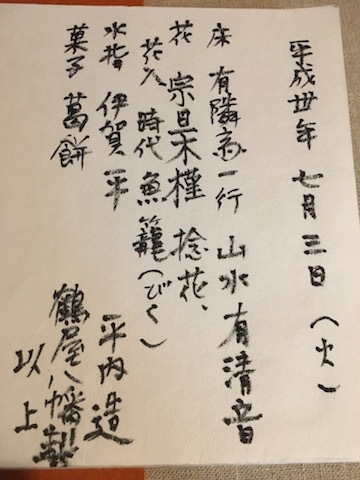 平成卅年 七月三日(火)
床 有隣斎一行 山水有清音
花 宗旦木槿 捻花、
花入 時代魚籠(びく)
水指 伊賀 平 平内造
菓子 葛餅 鶴屋八幡製
以上